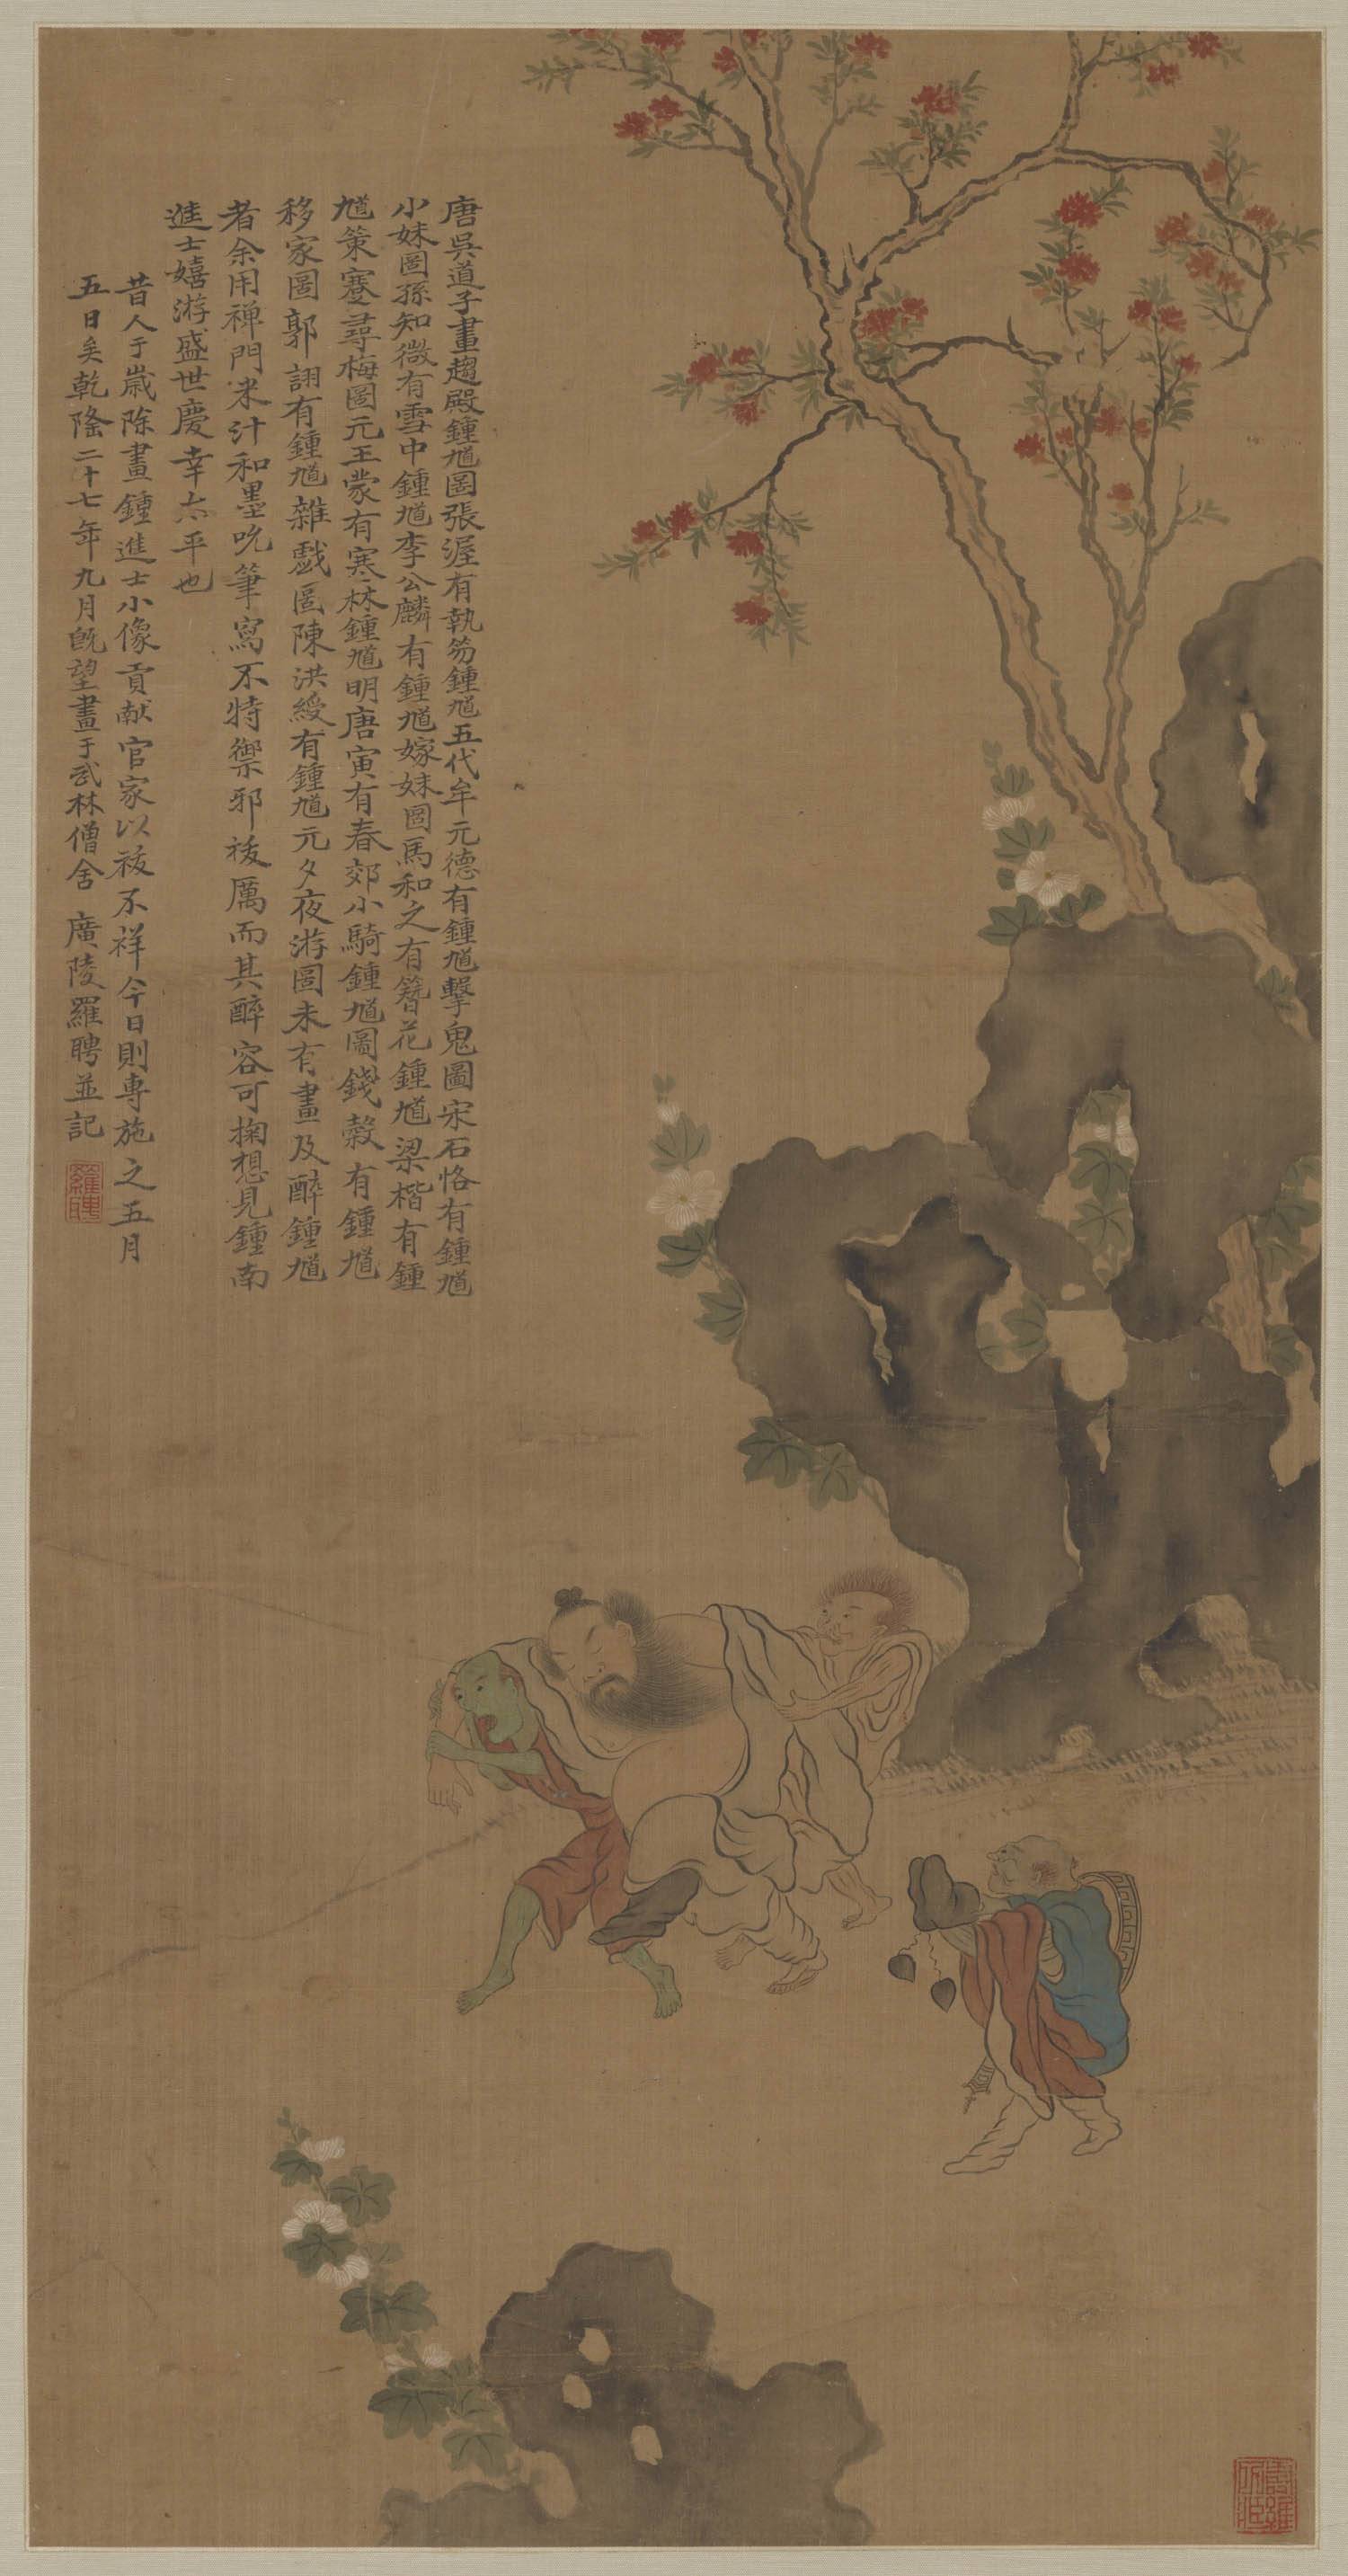 唐吳道子畫趨殿鍾馗圖張渥有執笏鍾馗五代牟元德有鍾馗擊鬼圖宋石恪有鍾馗
小妹圖孫知微有雪中鍾馗李公麟有鍾馗嫁妹圖馬和之有簪花鍾馗梁楷有鍾
馗策蹇尋梅圖元王蒙有寒林鍾馗明唐寅有春郊小騎鍾馗圖錢穀有鍾馗
移家圖郭詡有鍾馗雜戲圖陳洪綬有鍾馗元夕夜游圖未有畫及醉鍾馗
者余用禪門米汁和墨吮筆寫不特禦邪祓厲而其醉容可掬想見鍾南
進士嬉游盛世慶幸太平也
昔人于歲除畫鍾進士小像貢獻官家以祓不祥今日則專施之五月
五日矣乾隆二十七年九月既望畫于武林僧舍 廣陵羅聘並記
羅聘